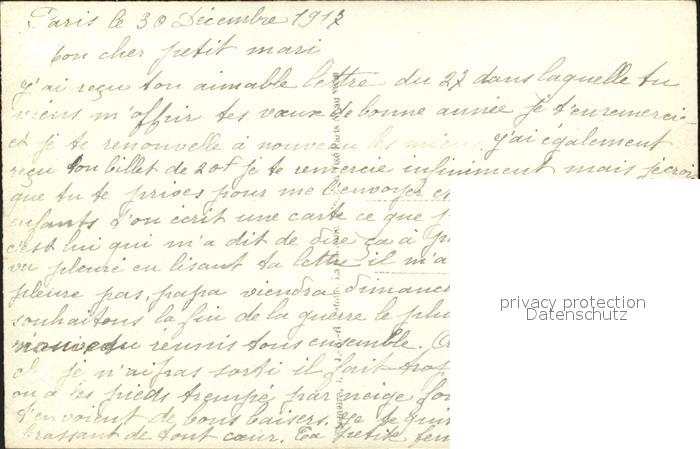 Paris le 30 Décembre 1917
Mon cher petit mari
j'ai reçu ton aimable lettre du 27 dans laquelle tu
viens m'offrir tes vœux de bonne année je t'en remercie
et je te renouvelle à nouveau les miens. j'ai également
reçu ton billet de 20f je te remercie infiniment mais je crois
que tu te prives pour me l'envoyer
enfants t'on écrit une carte ce que
c'est lui qui m'a dit de dire ça à
vu pleuré en lisant ta lettre il m'a
pleure pas, papa viendra dimanche
souhaitons la fin de la guerre le plus
nouveau réunis tous ensemble.
je n'ai pas sorti il fait trop
on a les pieds trempés par neige
t'envoient de bons baisers. je te
brassant de tout cœur. Ta petite
privacy protection
Datenschutz